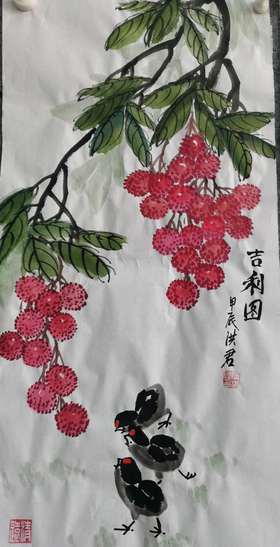 吉利图
甲辰洪君